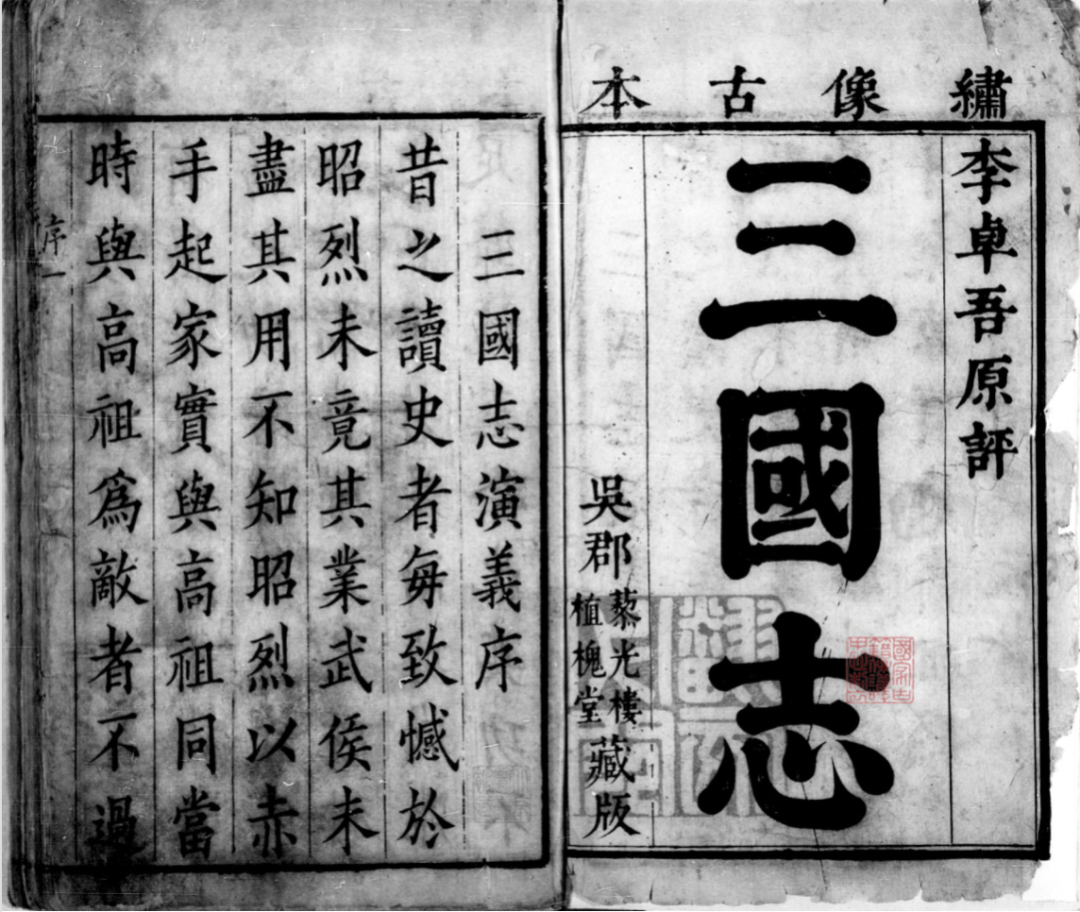 繡像古本
李卓吾原評
三國志
吳郡
藜光樓
植槐堂
藏版
三國志演義序
昔之讀史者每致憾於
昭烈未竟其業武侯未
盡其用不知昭烈以赤
手起家實與高祖同當
時與高祖為敵者不過
序一